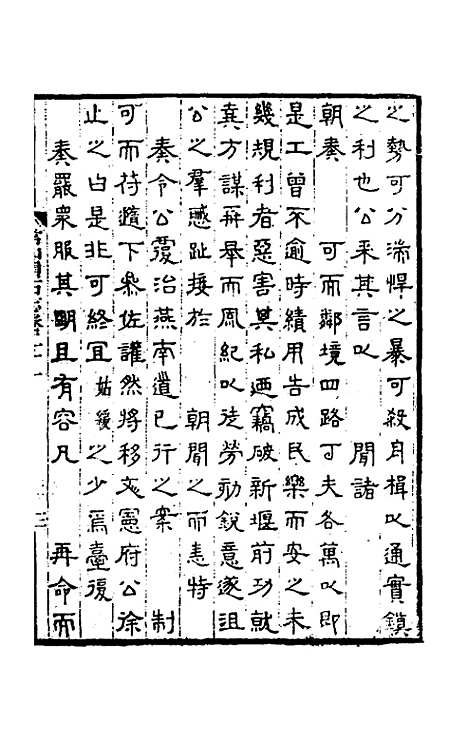 之勢可分湍悍之暴可殺舟楫以通實鎮
之利也公采其言以　聞諸
朝奏　可而鄰境四路丁夫各萬以即
是工曾不逾時績用告成民樂而安之未
幾規利者惡害其私迺竊破新堰前功就
棄方謀再舉而風紀以徒勞劾銳意遂沮
公之羣慼趾接於　朝聞之而恚特
奏令公覆治燕南遺已行之案　制
可而苻蘟下參佐讙然將移文憲府公徐
止之曰是非可終宜姑緩之少焉臺復
奏嚴衆服其明且有容凡　再命而